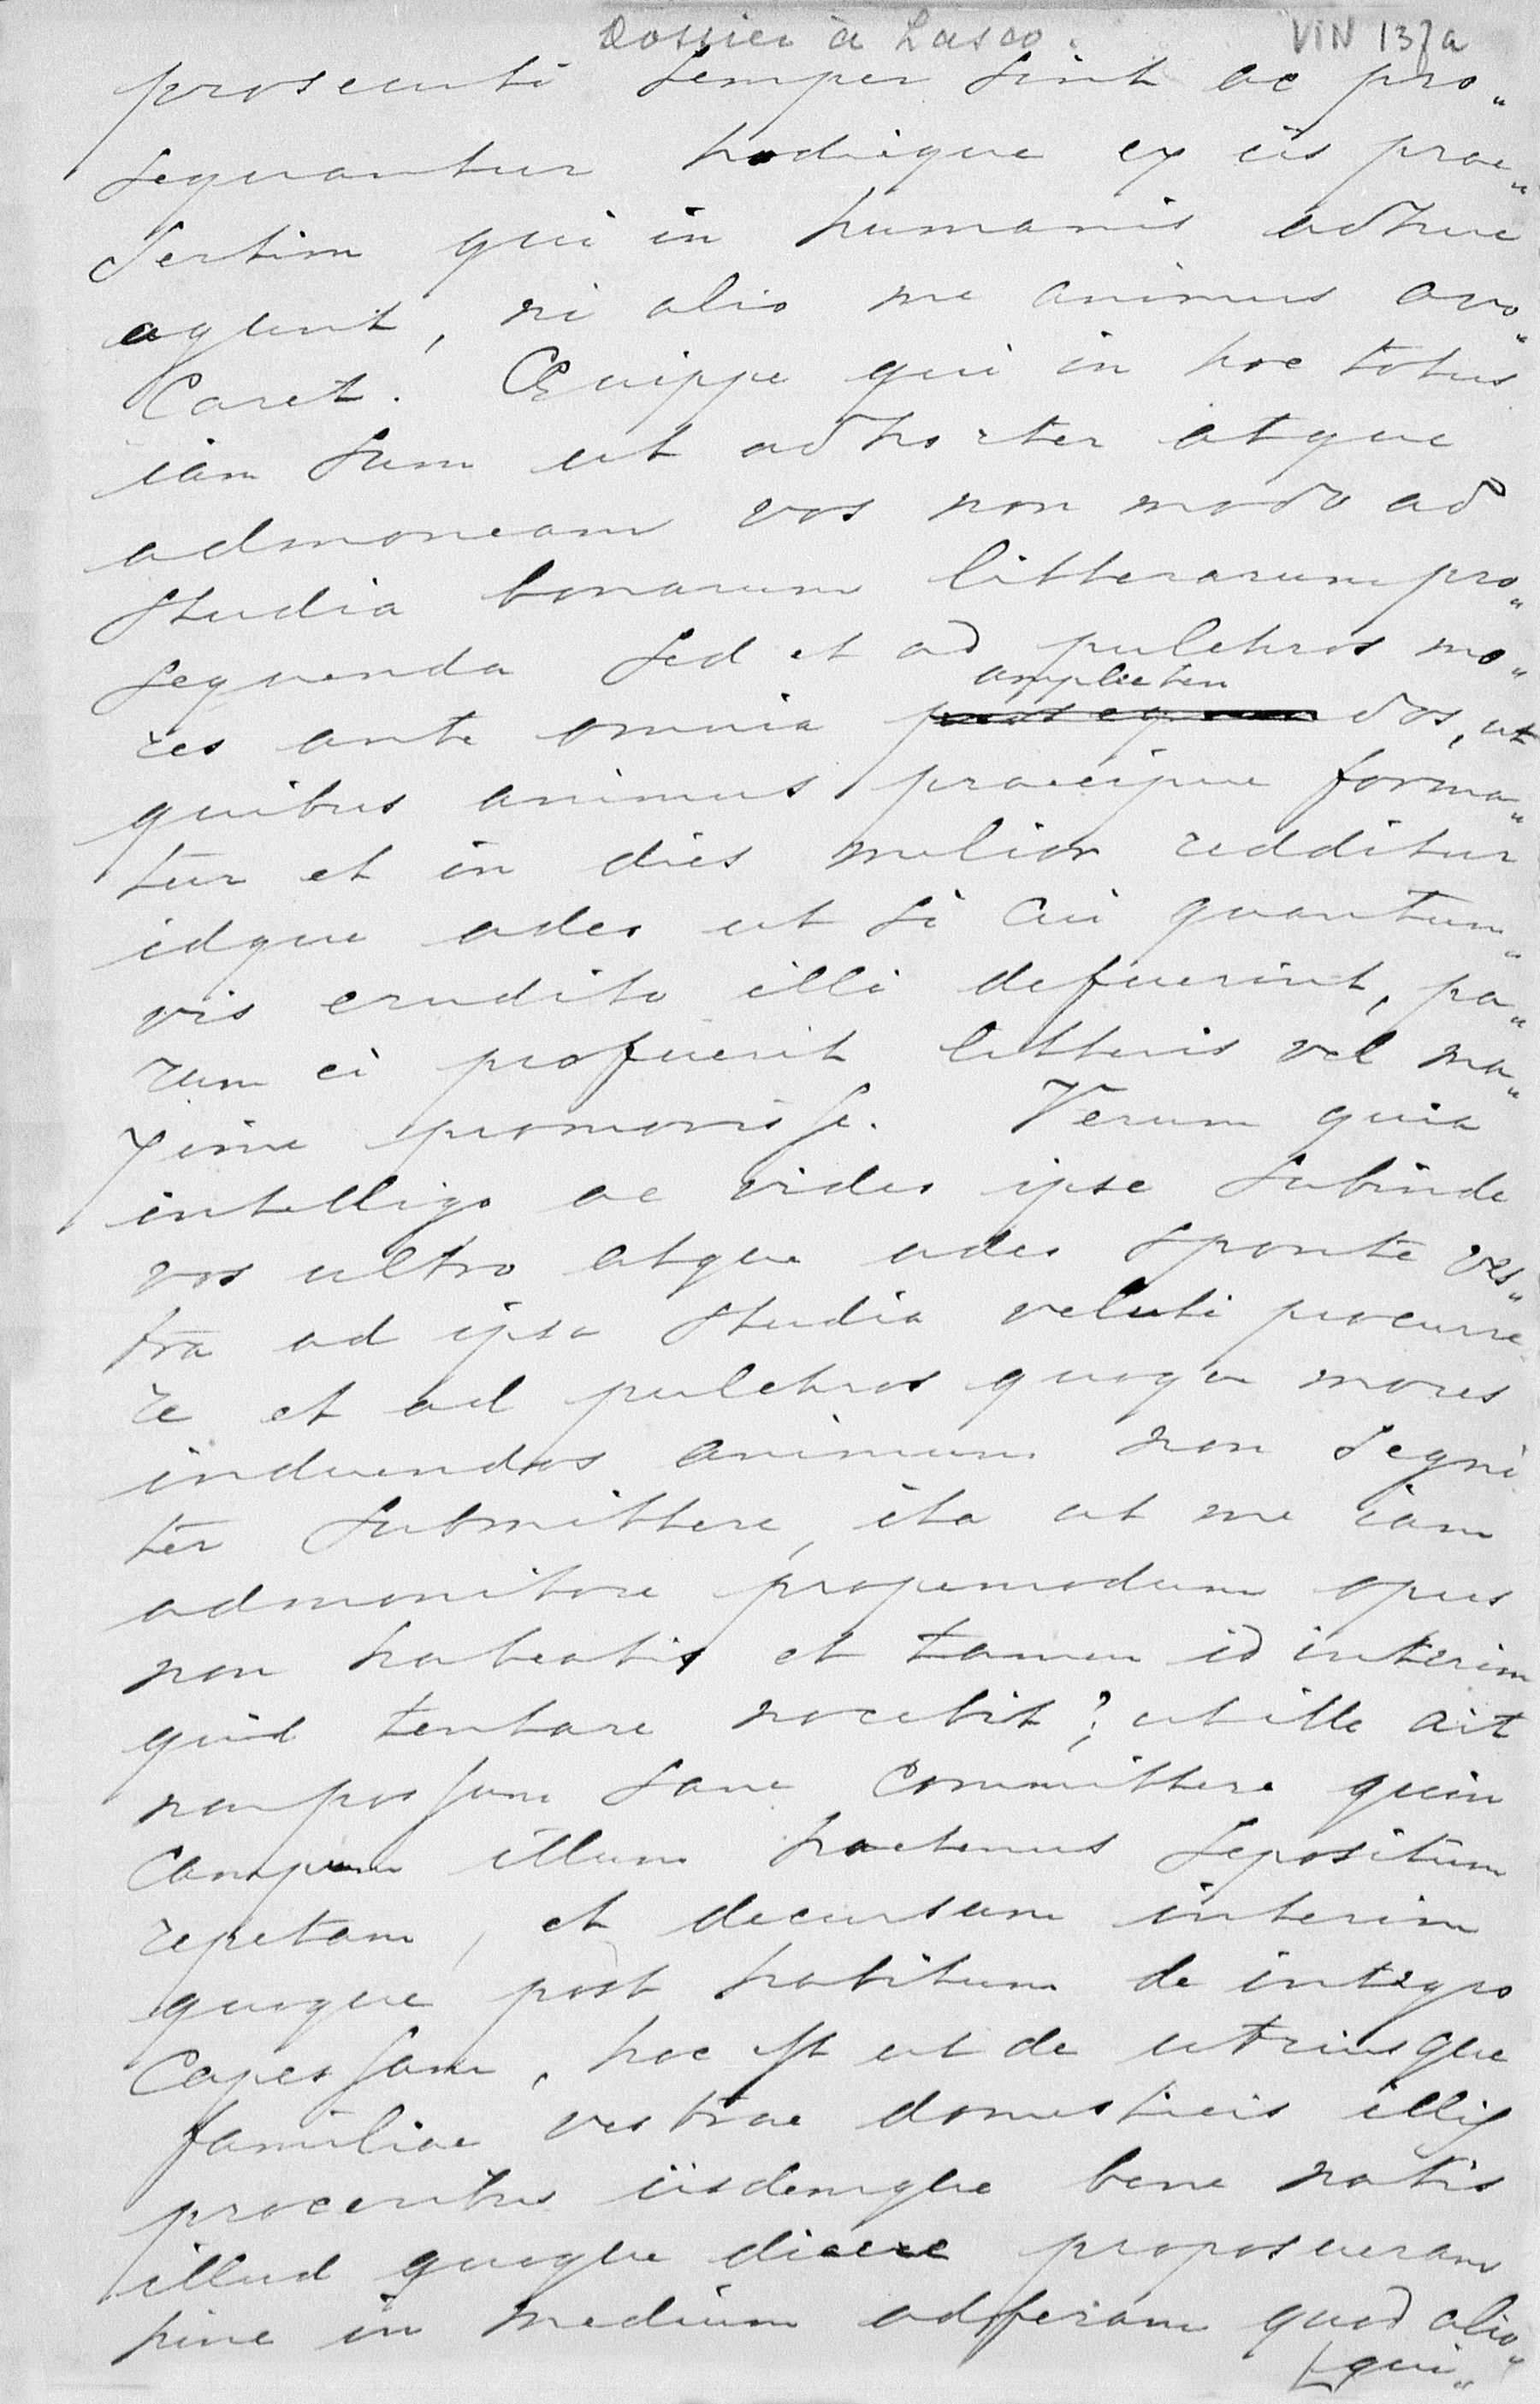 Dossier à Lasco. VIN 137a
prosecuti semper sint ac pro„
sequantur hodieque ex iis prae„
sertim qui in humanis adhuc
agunt, ni alio me animus avo„
caret. Quippe qui in hoc totus
iam sum ut adhorter atque
admoneam vos non modo ad
studia bonarum litterarum pro„
sequenda sed et ad pulchros mo„
amplecten
res ante omnia prosequen dos, ut
quibus animus praecipue forma„
tur et in dies melior redditur
idque adeo ut si cui quantum„
vis erudito illi defuerint, pa„
rum ei profuerit litteris vel ma„
xime promovisse. Verum quia
intelligo ac video ipse subinde
vos ultro atque adeo sponte ves„
tra ad ipsa studia veluti procurre
re et ad pulchros quoque mores
induendos animum non segni
ter submittere, ita ut me iam
admonitore propemodum opus
non habeatis et tamen id interim
quid tentare nocebit? ut ille ait
non possum sane committere quin
campum illum hactenus sepositum
repetam, et decursum interim
quoque post habitum de integro
capessam, hoc est ut de utriusque
familiae vestrae domesticis illis
proceribus iisdemque bene natis
illud quoque dicere proposueram
hinc in medium adferam quod alio„
qui„